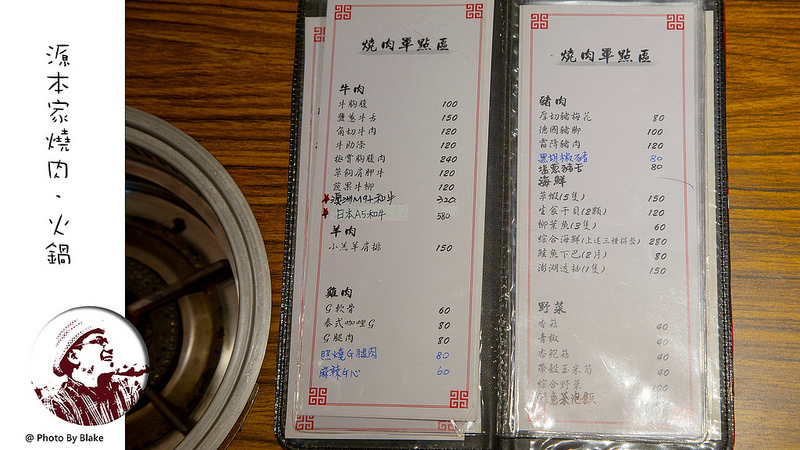 源本家燒肉・火鍋
@ Photo By Blake
燒肉單點區
牛肉
牛胸腹 100
鹽蔥牛舌 150
骰切牛肉 120
牛肋條 120
極賞胸腹肉 240
草飼肩胛牛 120
蔬果牛柳 120
澳洲M9+和牛 320
日本A5和牛 580
羊肉
小羔羊肩排 150
雞肉
G軟骨 60
泰式咖哩G 80
G腿肉 80
照燒G腿肉 80
麻辣G心 60
燒肉單點區
豬肉
厚切豬梅花 80
德國豬腳 100
霜降豬肉 120
黑胡椒豬 80
塩蔥豬舌 80
海鮮
草蝦(5隻) 150
生食干貝(2顆) 120
柳葉魚(3隻) 60
綜合海鮮(上述三種拼盤) 280
鮭魚下巴(2片) 80
澎湖透抽(1隻) 150
野菜
香菇 40
青椒 40
杏鮑菇 40
帶殼玉米筍 40
綜合野菜 100
魚茶泡飯